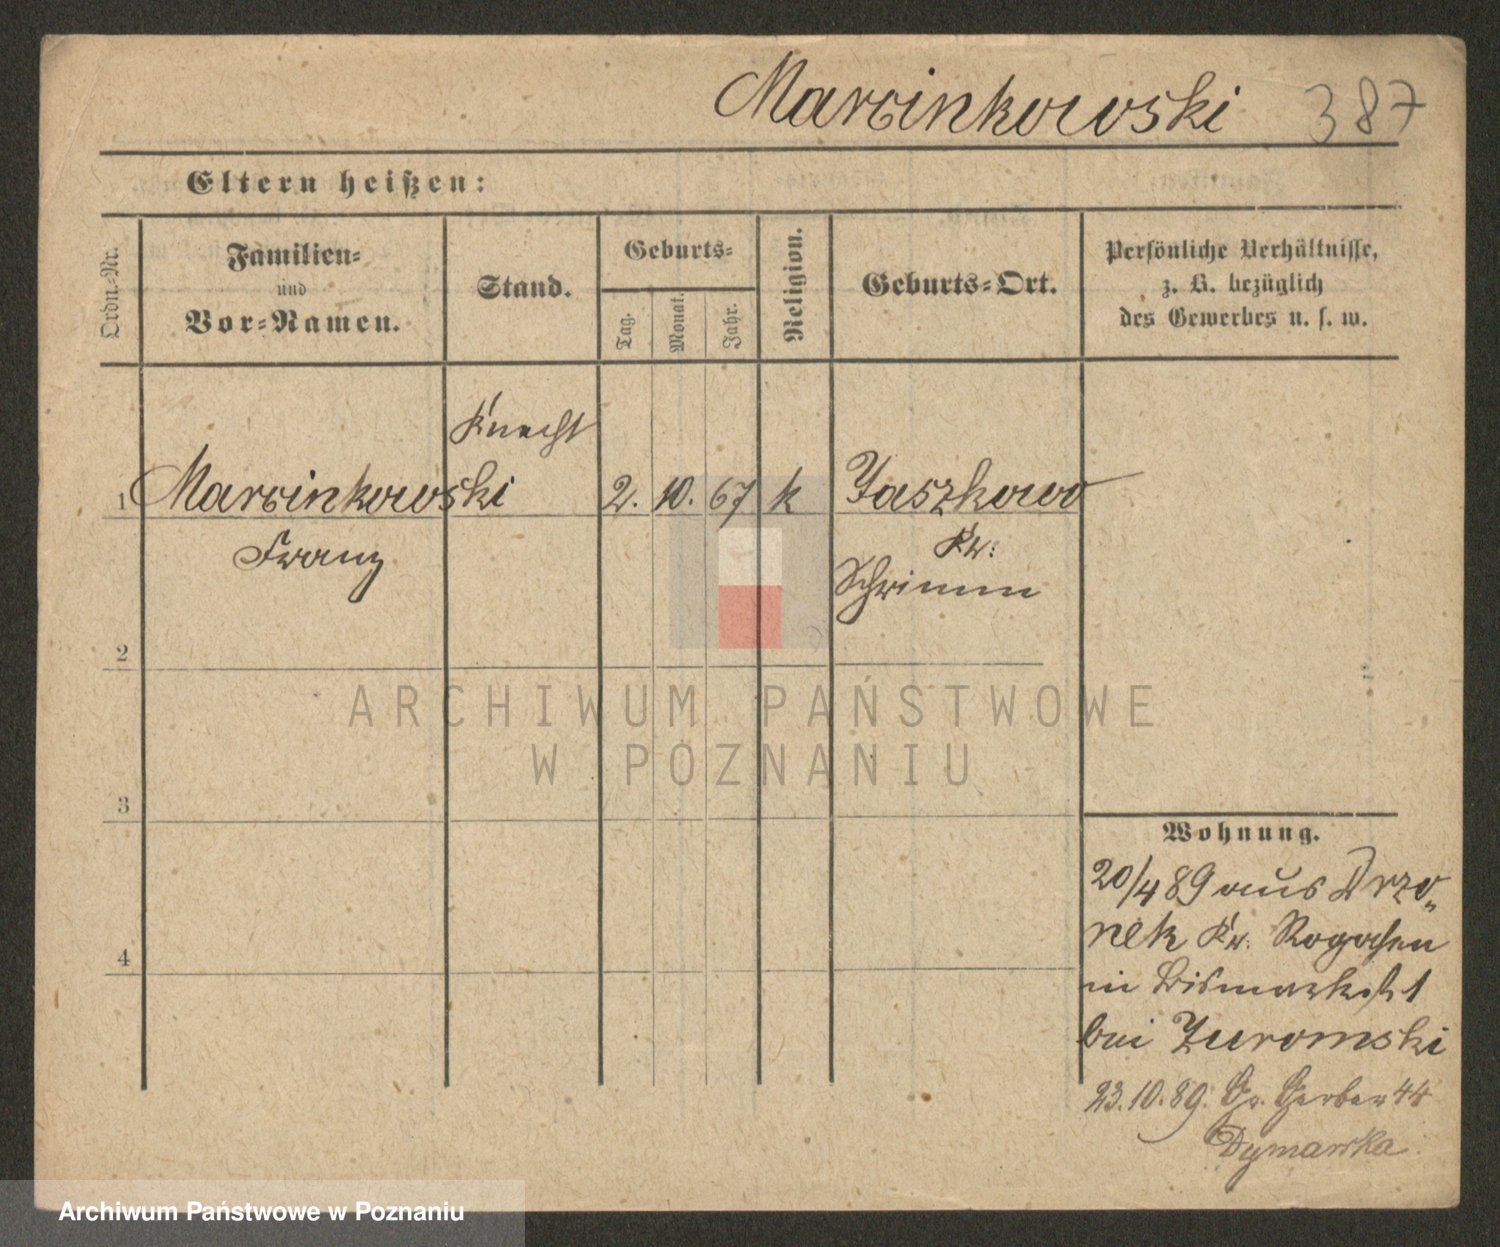 Marcinkowski 387
Eltern heißen:
Ordn.-Nr.
Familien-
und
Vor-Namen.
Stand.
Geburts-
Tag.
Monat.
Jahr.
Religion.
Geburts-Ort.
Persönliche Verhältnisse,
z. B. bezüglich
des Gewerbes u. s. w.
Knecht
1 Marcinkowski 2. 10. 67 k Jaszkowo
Franz Kr:
Schrimm
2
3
4
ARCHIWUM PAŃSTWOWE
W POZNANIU
Wohnung.
20/4 89 aus Drzo„
nek Kr. Rogasen
in Bismarkst 1
bei Zuromski
23.10.89. Gr. Gerber 44
Dymarska
Archiwum Państwowe w Poznaniu